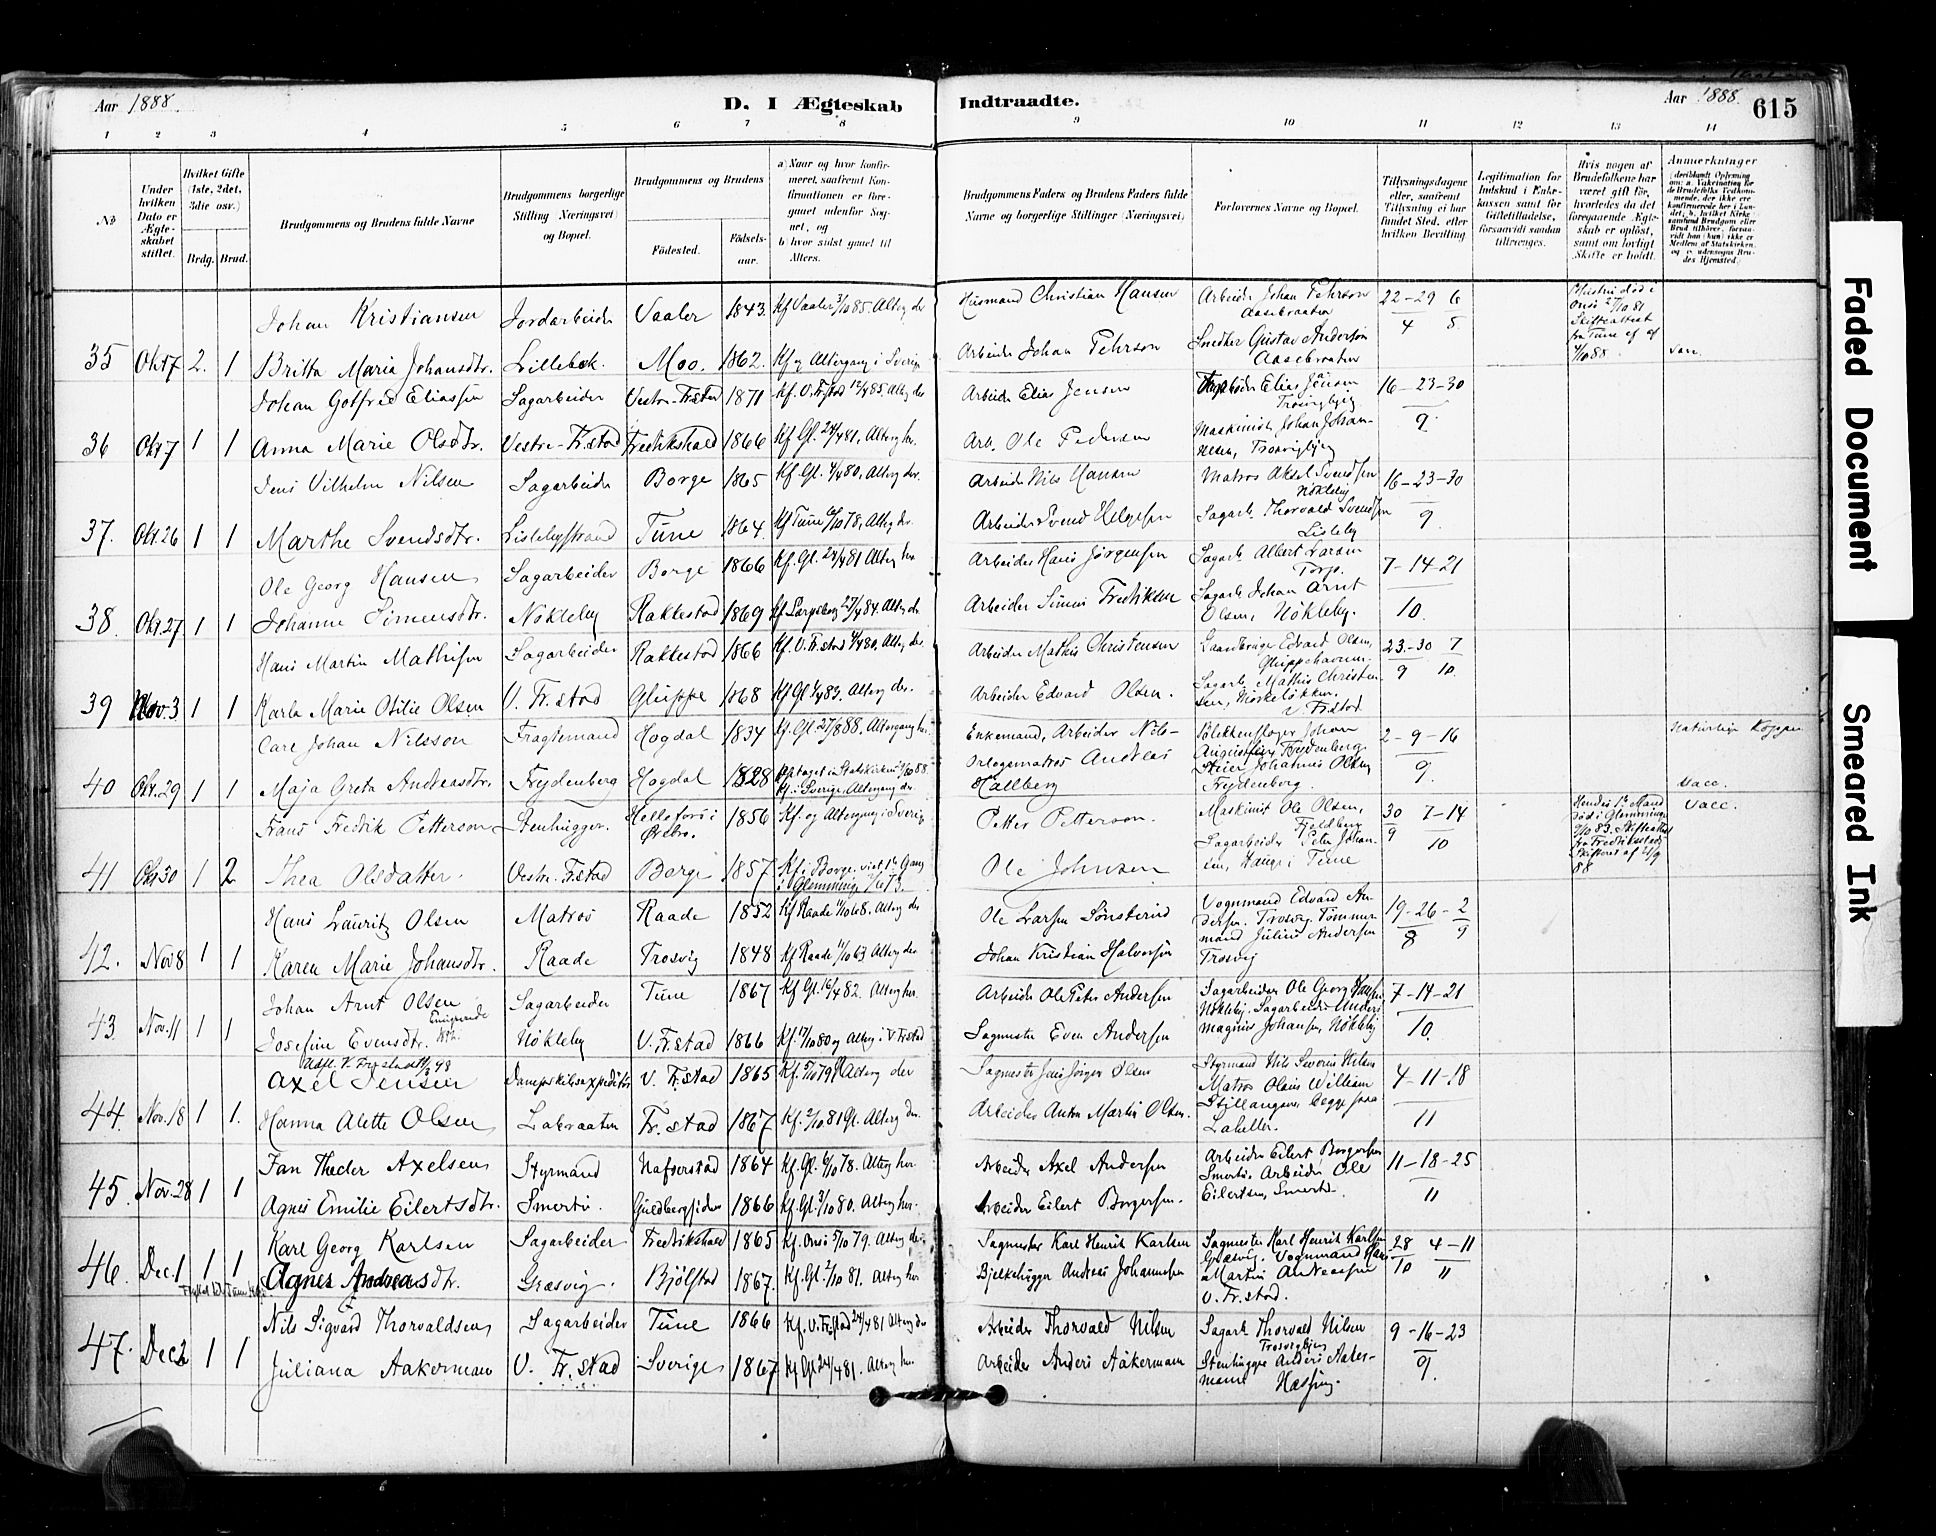 Aar 1888.
D. I Ægteskab Indtraadte.
Aar 1888. 615
1 2 3 4 5 6 7 8 9 10 11 12 13 14
No
Under hvilken Dato er Ægteskabet stiftet.
Hvilket Gifte (1ste, 2det, 3die osv.)
Brdg. Brud.
Brudgommens og Brudens fulde Navne
Brudgommens borgerlige Stilling (Næringsvei) og Bopæl.
Brudgommens og Brudens
Fødested. Fødselsaar.
a) Naar og hvor konfirmeret, saafremt Konfirmationen er foregaaet udenfor Sognet, og
b) hvor sidst gaaet til Alters.
Brudgommens Faders og Brudens Faders fulde Navne og borgerlige Stillinger (Næringsvei)
Forlovernes Navne og Bopæl.
Tillysningsdagene eller, saafremt Tillysning ei har fundet Sted, efter hvilken Bevilling
Legitimation for Indskud i Enkekassen samt for Giftetilladelse, forsaavidt saadan tiltrænges.
Hvis nogen af Brudefolkene har været gift før, hvorledes da det foregaaende Ægteskab er opløst, samt om lovligt Skifte er holdt.
Anmerkninger
Johan Kristiansen Jordarbeider Vaaler 1843. Kf Vaaler 3/10 85. Alterg der Husmand Christian Hansen Arbeider Johan Pehrson Aasebraaten 22-29 6 / 4 5
35 Okt 7 2. 1 Britta Maria Johansdtr. Lillebæk. Moo. 1862. Kf og Altergang i Sverige Arbeider Johan Pehrson Snedker Gustav Anderson Aasebraaten
Johan Gotfred Eliassen Sagarbeider Vestre-Fr.stad 1871 Kf. V. Fr.stad 12/4 85. Alterg der Arbeider Elias Jensen Elias Jensen Trosvigbjerg 16-23-30 / 9.
36 Okt 7 1 1 Anna Marie Olsdtr. Vestre-Fr.stad Fredrikshald 1866 Kf Gl. 24/4 81, Alterg her. Arb. Ole Pedersen Maskinist Johan Johannesen, Trosvigbjerg
Jens Vilhelm Nilsen Sagarbeider Borge 1865 Kf. Gl. 4/4 80. Alterg der. Arbeider Nils Hansen Matros Aksel Svendsen Nøkleby 16-23-30 / 9.
37. Okt. 26 1 1 Marthe Svendsdtr. Lislebystrand Tune 1864. Kf Tune 6/10 78, Alterg der. Arbeider Svend Helgesen Sagarb. Thorvald Svendsen Lisleby
Ole Georg Hansen Sagarbeider Borge 1866 Kf. Gl. 24/4 81 Alterg her Arbeider Hans Jørgensen Sagarb. Albert Larsen Torp. 7-14-21 / 10.
38. Okt. 27 1 1 Johanne Simensdtr. Nøkleby Rakkestad 1869 Kf Sarpsborg 27/4 84. Alterg der Arbeider Simen Fredriksen Sagarb Johan Arnt Olsen, Nøkleby.
Hans Martin Mathisen Sagarbeider Rakkestad 1866 Kf. V. Fr.stad 4/4 80. Alterg der Arbeider Mathis Christensen Edvard Olsen, Gluppehavnen. 23.-30 7 / 9 10.
39 Nov. 3 1 1 Karla Marie Otilie Olsen V. Fr.stad Gluppe 1868 Kf Gl 1/4 83. Alterg der. Arbeider Edvard Olsen. Sagarb. Mathis Christensen, V. Fr.stad
Carl Johan Nilsson Fragtemand Hogdal 1834 Kf. Gl. 27/8 88. Altergang her. Enkemand, Arbeider Nils- Johan Augustsen Frydenberg 2-9-16 / 9. Naturlige Kopper
40 Okt. 29 1 1 Maja Greta Andreasdtr. Frydenberg Hogdal 1828 Optaget i Statskirken 88. Kf. i Sverige. Altergang der. Orlogsmatros Andreas Hallberg Johannes Olsen Frydenberg. Vacc.
Frans Fredrik Petterson Stenhugger. Hellefors i Örebro. 1856 Kf. og Altergang i Sverige Petter Petterson. Maskinist Ole Olsen, Fjeldberg 30 7-14 / 9 10 Hendes 1ste Mand død i Glemminge 83. Skifteattest fra Fredriksstads Skifteret af 21/9 88 Vacc.
41 Okt 30 1 2 Thea Olsdatter. Vestre-Fr.stad Borge 1857 Kf. i Borge. viet 1ste Gang i Glemminge 73. Ole Johnsen Sagarbeider Peter Johansen, Hauge i Tune
Hans Lauritz Olsen Matros Raade 1852 Kf Raade 11/10 68. Alterg der Ole Larsen Sønsterud Vognmand Edvard Andersen. Trosvig. Tømmermand Julius Andersen Trosvig 19-26-2 / 8 9
42. Nov 8 1 1 Karen Marie Johansdtr. Raade Trosvig 1848 Kf Raade 11/10 63 Alterg der Johan Kristian Halvorsen
Johan Arnt Olsen Sagarbeider Tune 1867 Kf Gl. 16/4 82. Alterg her. Arbeider Ole Peter Andersen Sagarbeider Ole Georg Hansen Nøkleby. Sagarbeider Anders Magnus Johansen, Nøkleby 7-14-21 / 10.
43. Nov. 11 1 1 Josefine Evensdtr. Nøkleby V. Fr.stad 1866 Kf. 17/10 80 og Alterg i V Fr.stad Sagmester Even Andersen
Axel Jensen Dampskibsexpeditør V. Fr.stad 1865 Kf. 5/10 79, Alterg der Sagmester Jens Jørgen Olsen Styrmand Nils Severin Nilsen Matros Olaus William Stillangsen, begge paa Lahellen. 4-11-18 / 11
44. Nov. 18 1 1. Hanna Alette Olsen Labraaten Fr.stad 1867 Kf. 2/10 81 Gl. Alterg der. Arbeider Anton Martin Olsen.
Jan Theder Axelsen Styrmand Hafserstad 1864 Kf. Gl. 6/10 78. Alterg her Arbeider Axel Andersen Arbeider Eilert Borgersen Smertu. Arbeider Ole Eilertsen, Smertu. 11-18-25 / 11
45. Nov. 28 1 1 Agnes Emilie Eilertsdtr. Smertu. Guldbergsiden 1866 Kf. Gl. 3/10 80. Alterg her. Arbeider Eilert Borgersen.
Karl Georg Karlsen Sagarbeider Fredrikshald 1865 Kf. Onsø 5/10 79. Alterg der Sagmester Karl Henrik Karlsen Sagmester Karl Henrik Karlsen Græsvig. Vognmand Hans Martin Andreassen V. Fr.stad. 28 4-11 / 10 11
46. Dec. 1 1 1 Agnes Andreasdtr. Græsvig. Bjølstad 1867. Kf. Gl. 2/10 81. Alterg her Bjelkehugger Andreas Johannesen
Nils Sigvard Thorvaldsen Sagarbeider Tune 1866 Kf. V. Fr.stad 24/4 81 Alterg der Arbeider Thorvald Nilsen Sagarb. Thorvald Nilsen Trosvigbjerg 9-16-23 / 9.
47. Dec 2 1 1 Juliana Aakerman V. Fr.stad Sverige 1867 Kf Gl 24/4 81. Alterg her Arbeider Anders Aakermann Stenhugger Anders Aakermann Hassing.
Faded Document
Smeared Ink